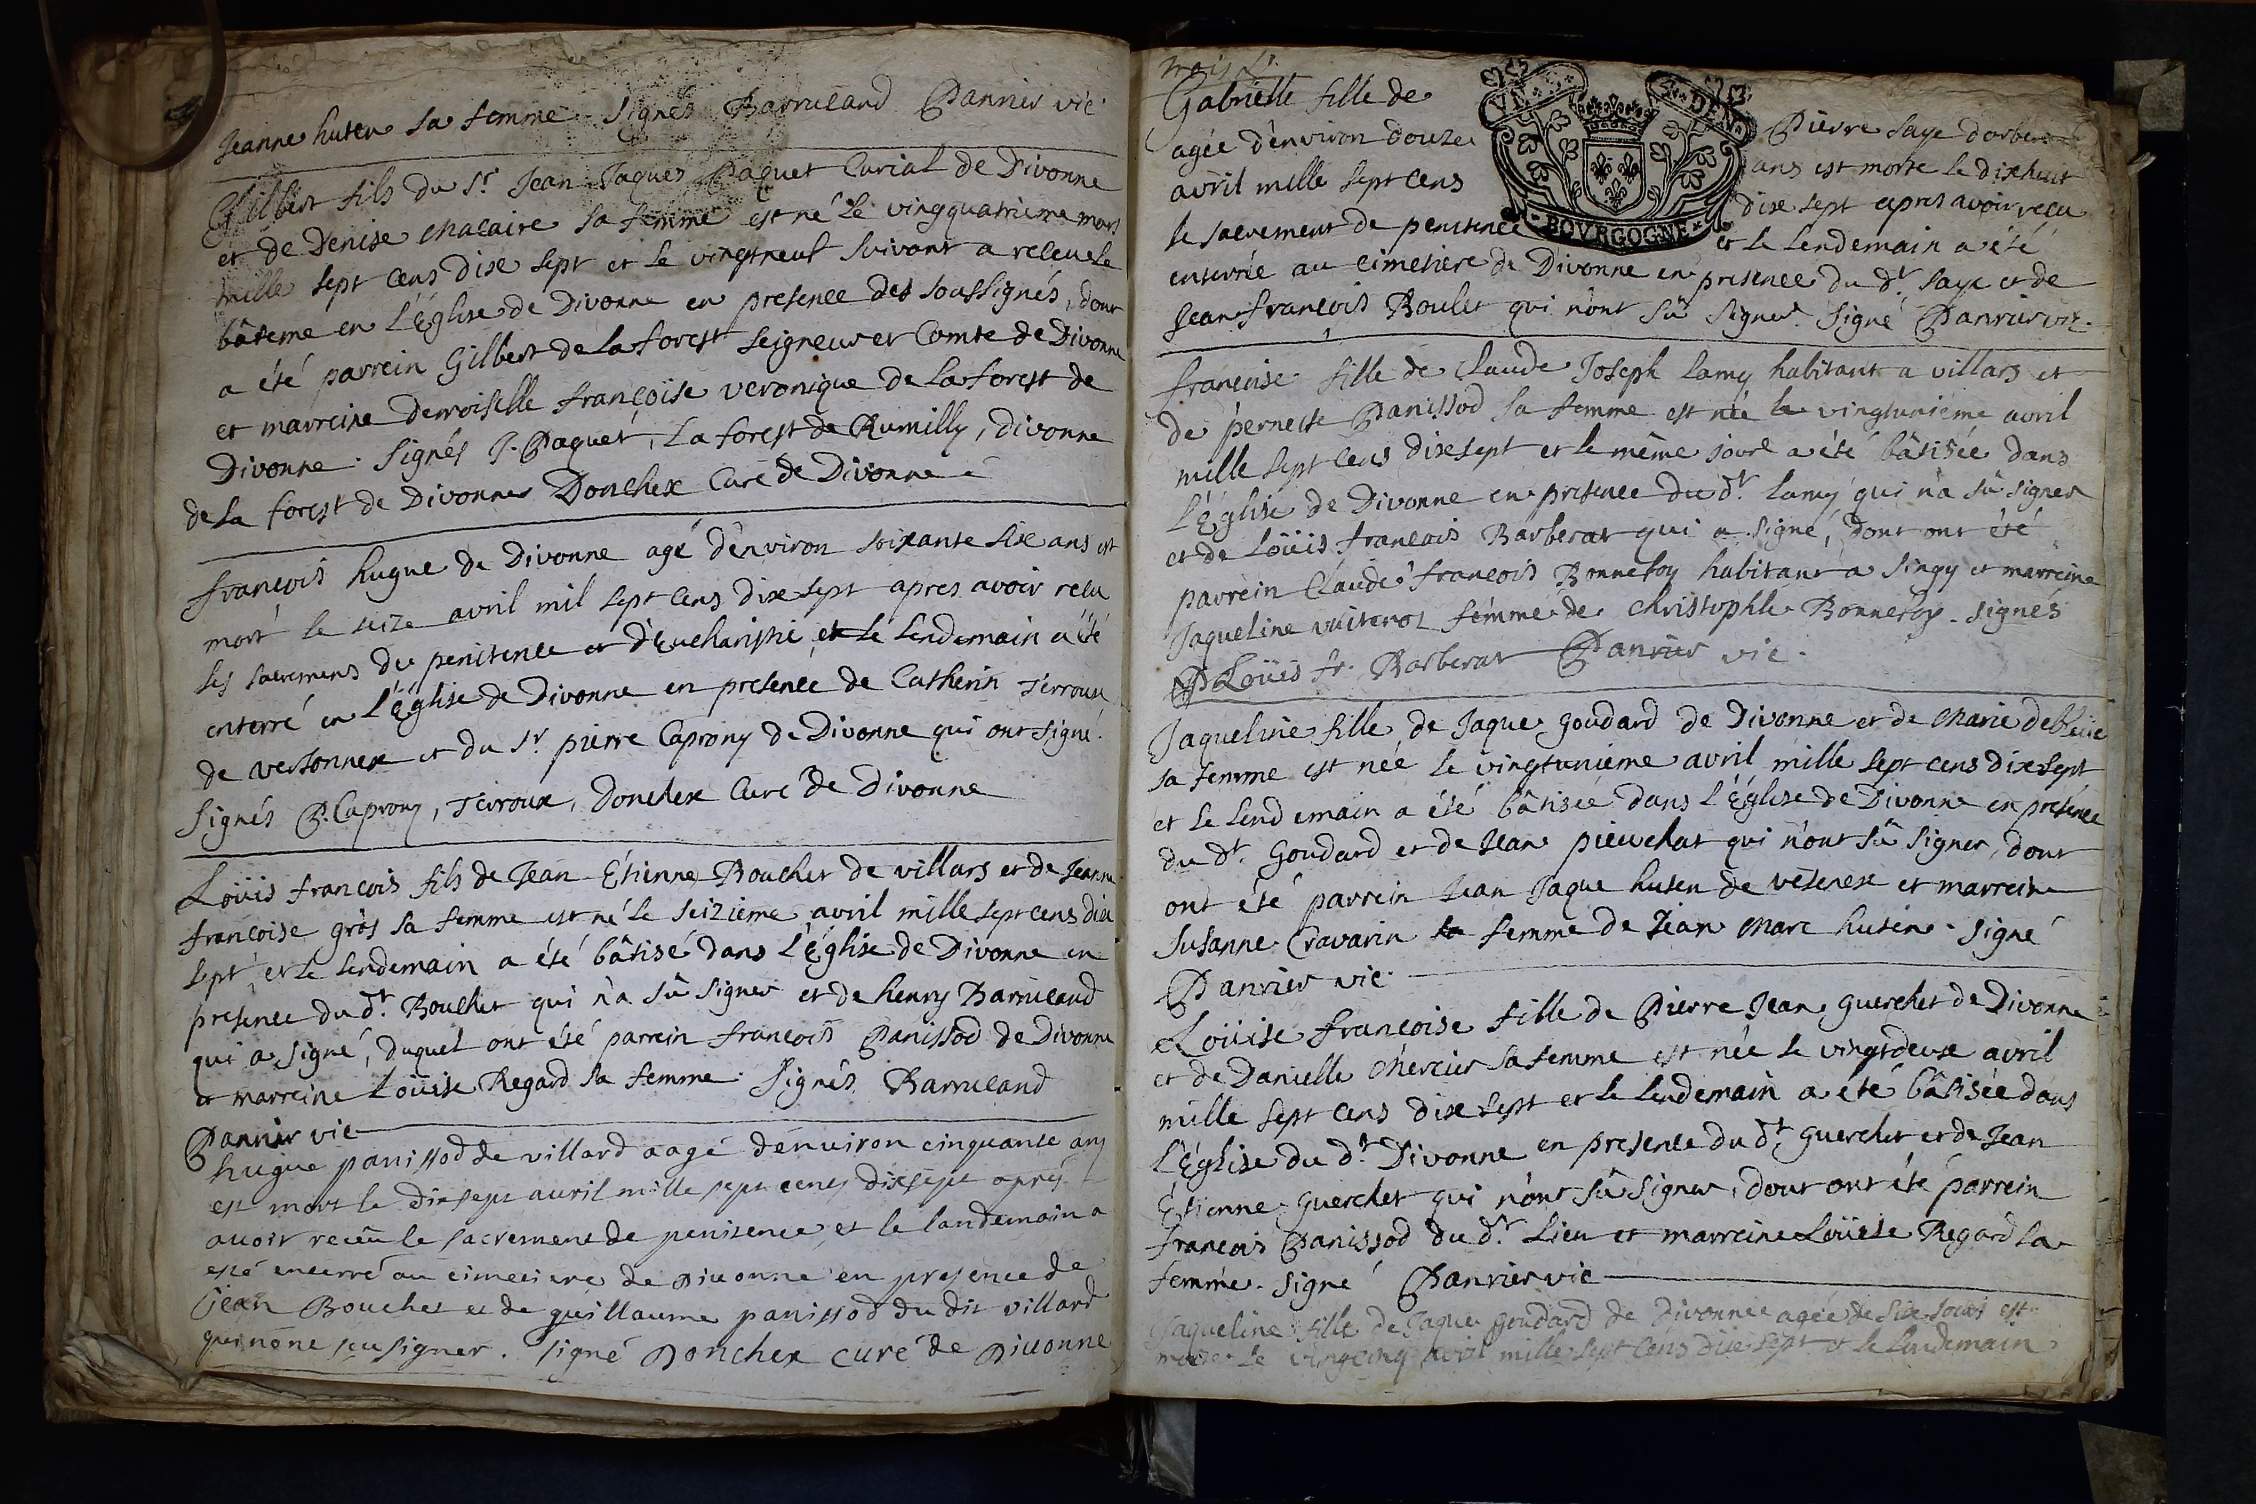 Jeanne huten sa femme. Signés Barruland Panrier vic.
Gilbert fils du Sr. Jean Jaques Paquet Curial de Divonne
et de Denise Macaire sa femme est né le vingquatrieme mars
mille sept cens dixe sept et le vingtneuf suivant a receu le
bâteme en l'Église de Divonne en presence des soussignés, dont
a été parrein Gilbert de la forest Seigneur et Comte de Divonne
et marreine demoiselle françoise veronique de la forest de
Divonne. Signés J. Paquet, La forest de Rumilly, divonne
de la forest de Divonne Donchex Curé de Divonne
françois hugue de Divonne agé d'environ soixante sixe ans est
mort le seize avril mil sept cens dixe sept apres avoir relu
les sacremens de penitence et d'Eucharistie, et le lendemain a été
enterré en l'Église de Divonne en presence de Catherin Terroux
de versonnex et du Sr. pierre Caprony de Divonne qui ont signé.
Signés P. Caprony, Terroux, Donchex Curé de Divonne
Loüis francois fils de Jean-Étienne Boucher de villars et de Jeanne
francoise gros sa femme est né le seizieme avril mille sept cens dixe
sept, et le lendemain a été bâtisé dans l'Église de Divonne en
presence du dt. Boucher qui n'a sû signer et de henry Barruland
qui a signé, duquel ont été parrein françois Panissod de Divonne
et marreine Loüise Regard sa femme. Signés Barruland
Panrier vic
hugue panissod de villard aagé denuiron cinquante ans
est mort le dixsept auril mille sept cens dixsept apres
auoir receu le sacrement de penitence et le landemain a
esté enterré au cimetiere de Diuonne en presence de
Jean Boucher et de guillaume panissod du dit villard
qui nont sçu signer. signé Donchex curé de Diuonne
mais
Gabrielle fille de Pierre Saye d'arbere
agée d'environ douze ans est morte le dixhuit
avril mille sept cens dixe sept apres avoir relu
le sacrement de penitence et le lendemain a été
VN DEN BOVRGOGNE
enterrée au cimetiere de Divonne en presence du dt. Saye et de
Jean-françois Roulet qui n'ont sû signer. Signé Panrier vic.
francoise fille de Claude Joseph Lamy habitant a villars et
de pernette Panissod sa femme est née le vingtunieme avril
mille sept cens dixesept et le même jour a été bâtisée dans
l'Église de Divonne en presence du dt. Lamy qui n'a sû signer
et de Loüis francois Barberat qui a signé, dont ont été
parrein Claude francois Bonnefoy habitant a Singy et marreine
Jaqueline vuiterot femme de Christophle Bonnefoy. signés
Loüis fr. Barberat Panrier vic.
Jaqueline fille de Jaque goudard de Divonne et de Marie
sa femme est née le vingtunieme avril mille sept cens dixesept
et le lendemain a été bâtisée dans l'Église de Divonne en presence
du dt. Goudard et de Jean pieuchat qui n'ont sû signer, dont
ont été parrein Jean Jaque huten de vesenex et marreine
Susanne Cravarin femme de Jean Marc huten. signé
Panrier vic.
Loüise francoise fille de Pierre Jean guerchet de Divonne
et de Danielle Mercier sa femme est née le vingtdeuxe avril
mille sept cens dixe sept et le lendemain a été bâtisée dans
l'Église du dt. Divonne en presence du dt. guerchet et de Jean
Étienne guerchet qui n'ont sû signer, dont ont été parrein
francois Panissod du dt. Lieu et marreine Loüise Regard sa
femme. Signé Panrier vic
Jaqueline fille de Jaque goudard de divonne agée de sixe jours est
morte le vingcinq avril mille sept cens dixe sept et le lendemain